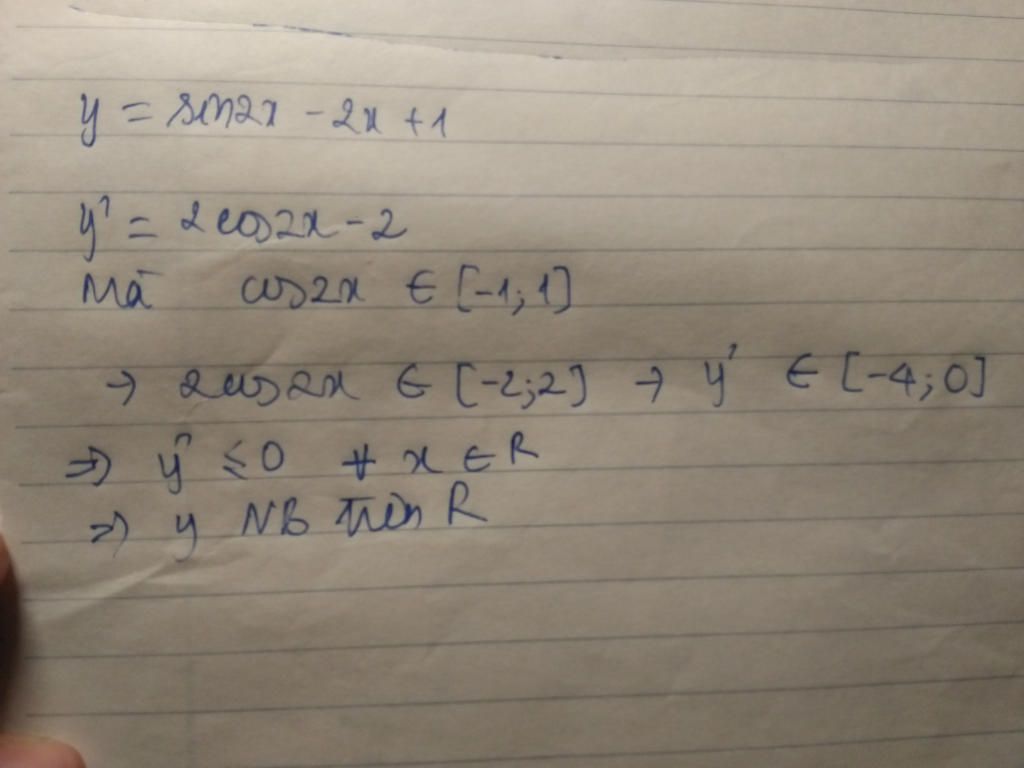 y = sin2x - 2x + 1
y' = 2cos2x - 2
Mà cos2x ∈ [-1; 1]
→ 2cos2x ∈ [-2; 2] → y' ∈ [-4; 0]
⇒ y' ≤ 0 ∀ x ∈ R
⇒ y NB trên R